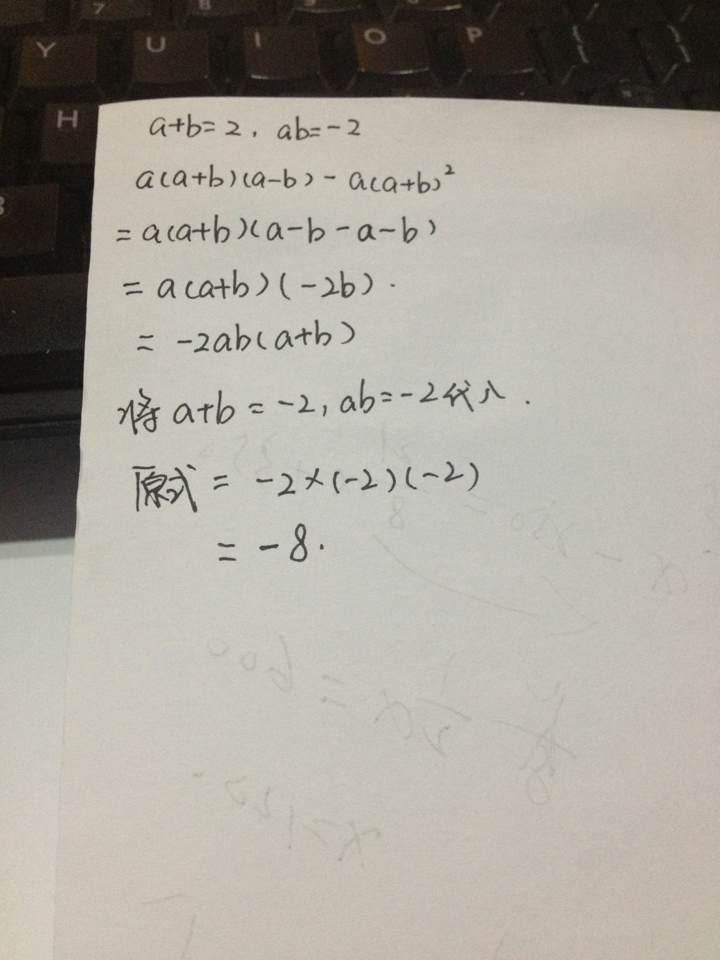 7 8
Y U I O P { }
H
a+b=2, ab=-2
a(a+b)(a-b) - a(a+b)²
= a(a+b)(a-b-a-b)
= a(a+b)(-2b).
= -2ab(a+b)
将 a+b=-2, ab=-2代入.
原式 = -2×(-2)(-2)
= -8.